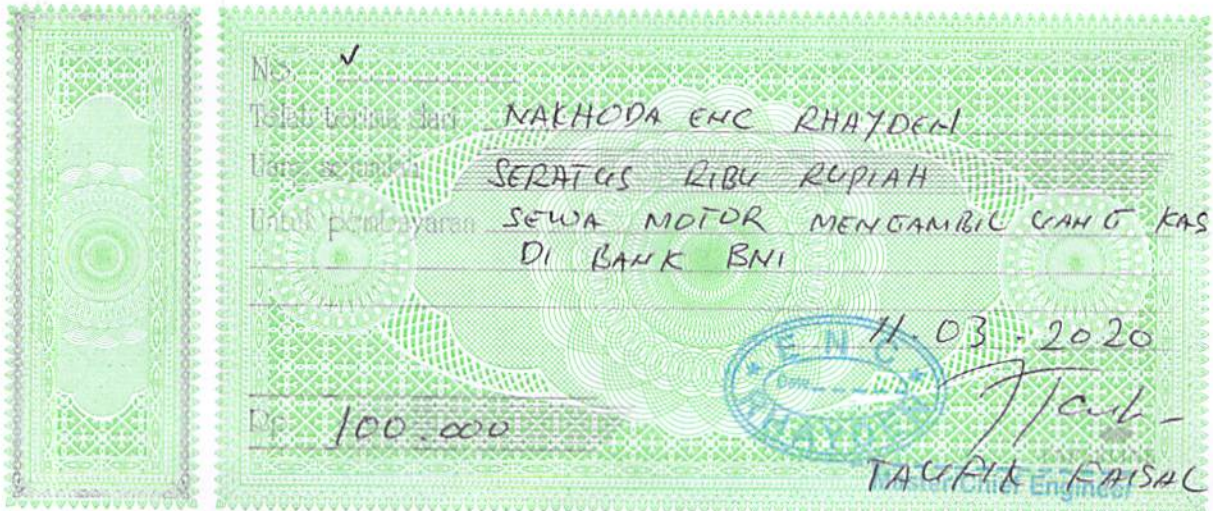 No. ✓
Telah terima dari NAKHODA ENC RHAYDEN
Uang sejumlah SERATUS RIBU RUPIAH
Untuk pembayaran SEWA MOTOR MENGAMBIL UANG KAS
DI BANK BNI
11.03.2020
ENC
Date
RHAYDEN
Rp. 100.000
TAUFIK FAISAL
Master/Chief Engineer